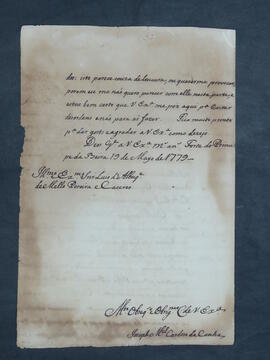 der. isto parece couza de loucura, ou quererme provocar,
porem eu me não quero parecer com elle nesta parte, e
estou bem certo que V Exª. me poz aqui pª. evitar
desordens e não para as fazer. Fico muito prompto
pª. dar gosto e agradar a V Exª. como dezejo
Deos Gᵉ. a V Exª. mˢ. anˢ. Forte do Princi
pe da Beira 19 de Mayo de 1779
Illᵐᵒ Exᵐᵒ Snr Luis de Albuqᵉ.
de Mello Pereira e Caceres
De V Exª
Joseph Mᵉˡ Cardoso da Cunha